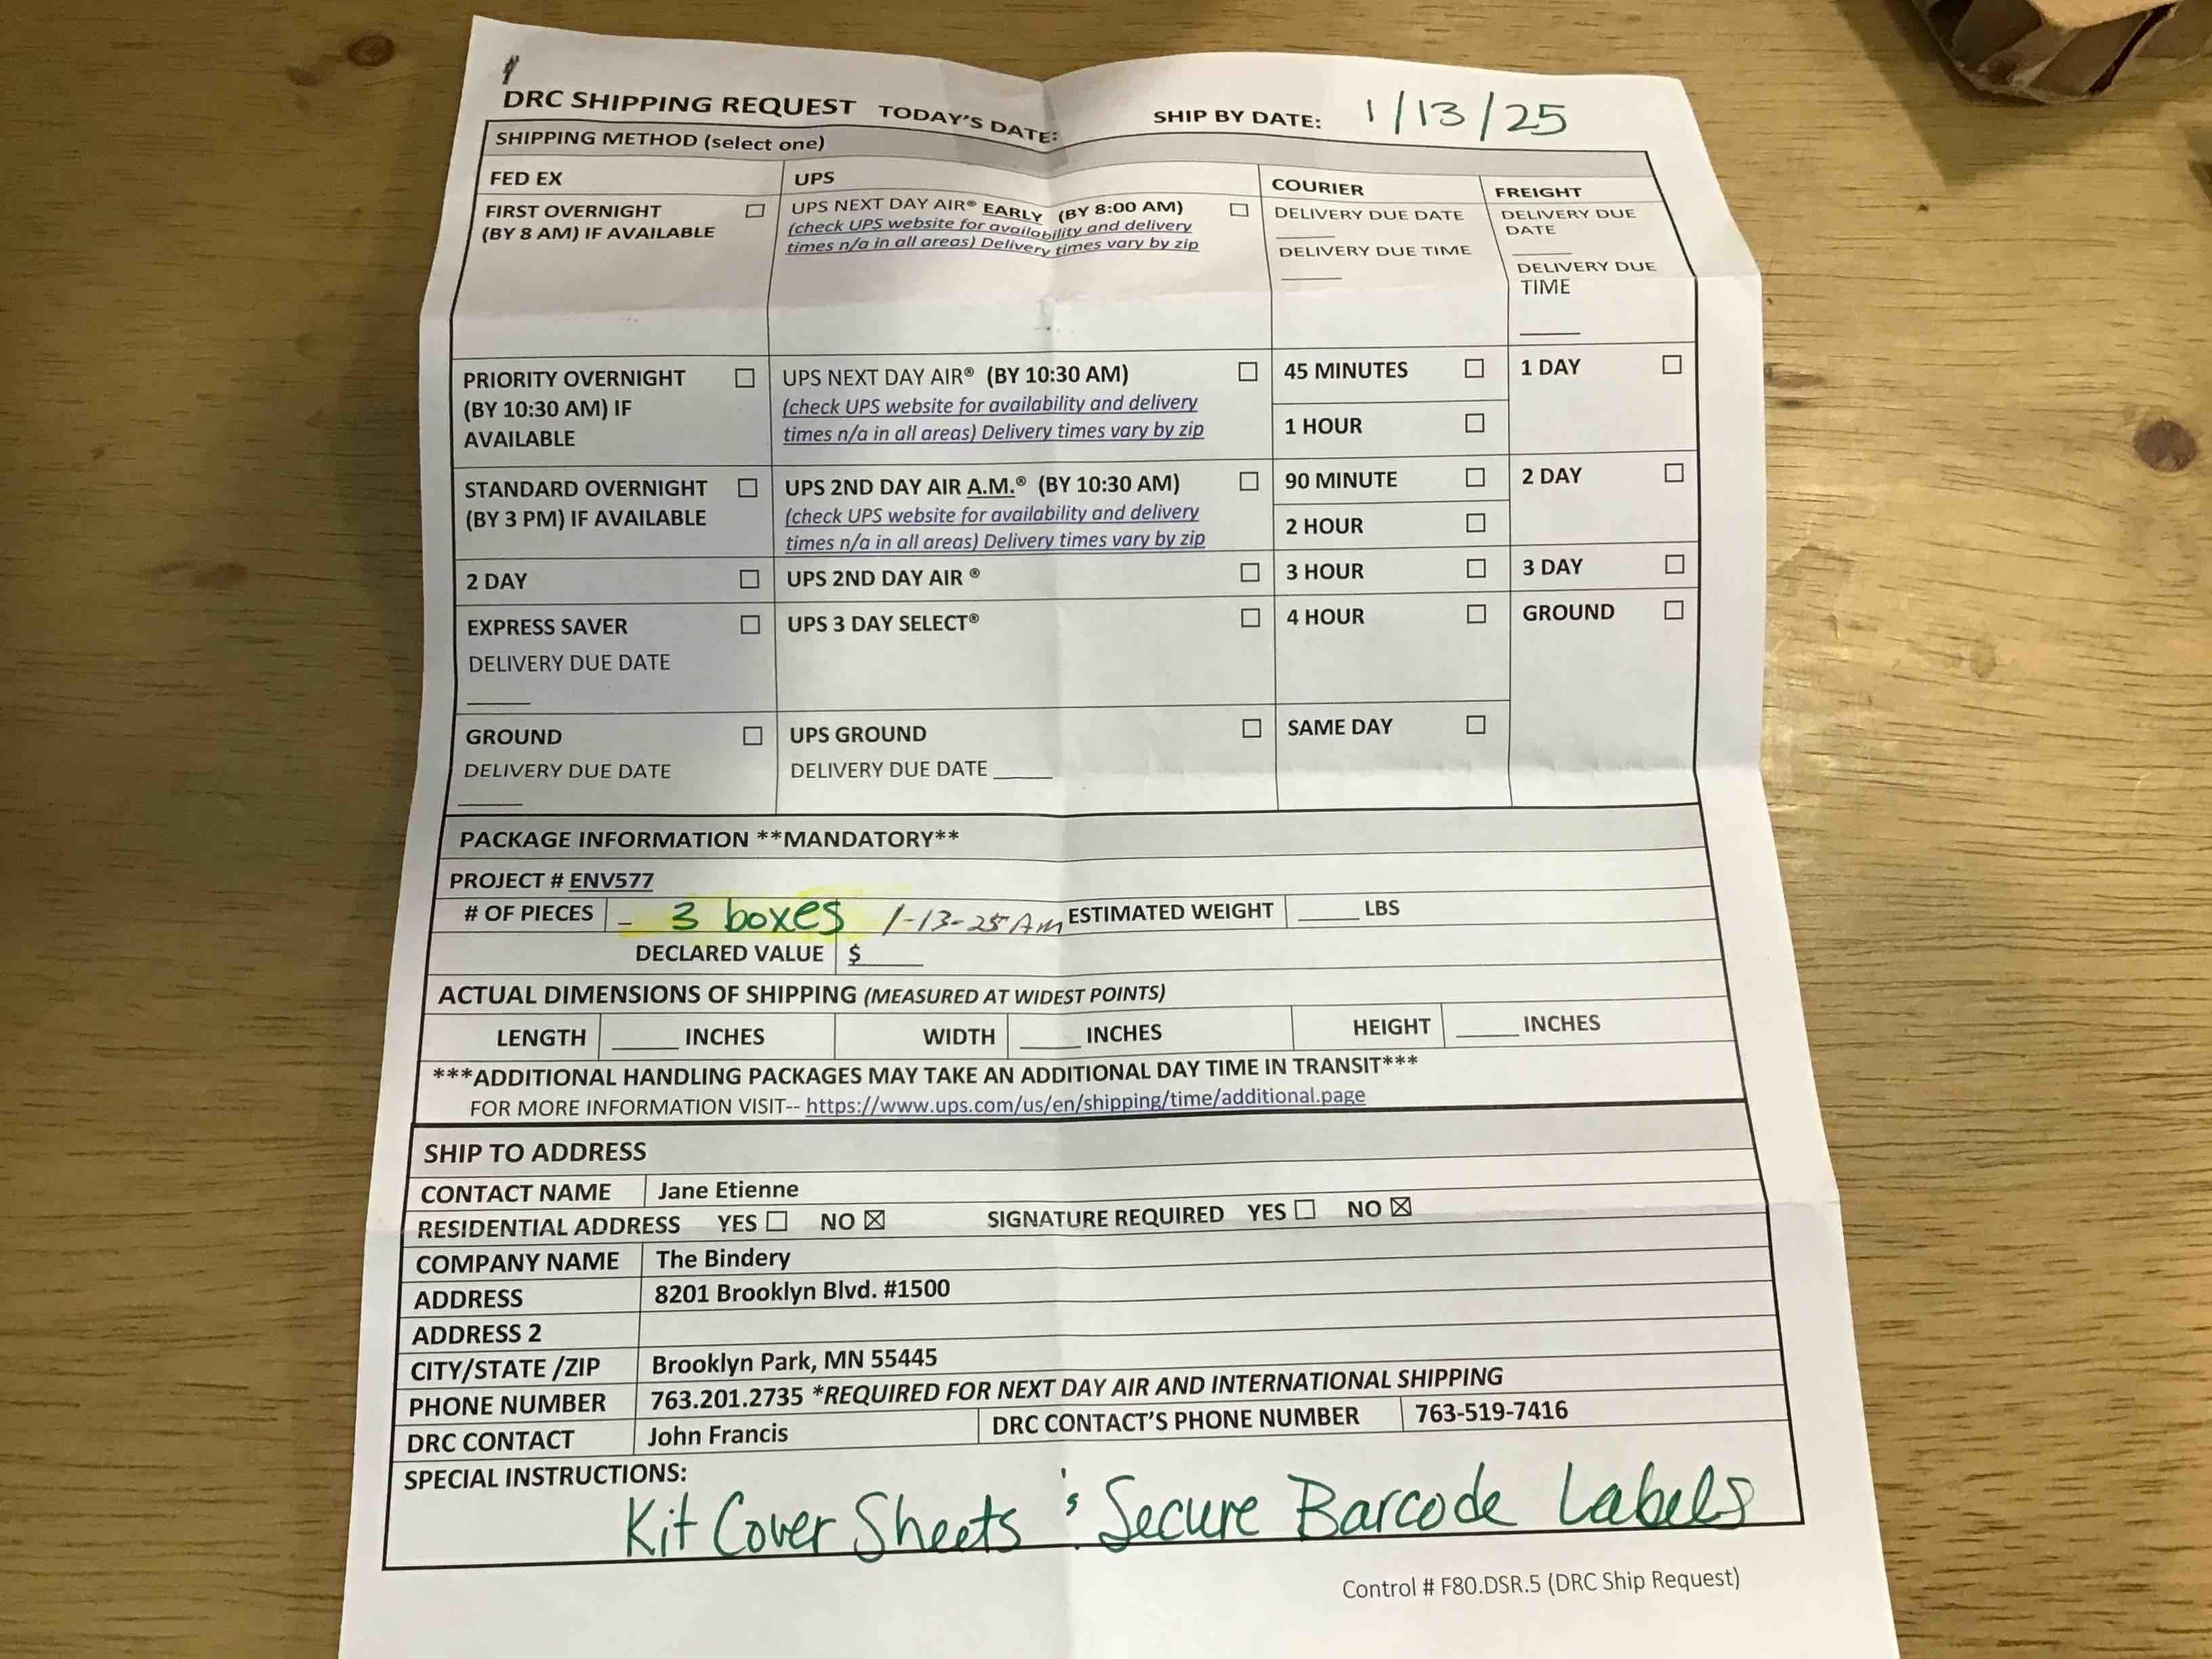 DRC SHIPPING REQUEST TODAY'S DATE: SHIP BY DATE: 1/13/25
SHIPPING METHOD (select one)
FED EX UPS COURIER FREIGHT
FIRST OVERNIGHT ☐ UPS NEXT DAY AIR® EARLY (BY 8:00 AM) ☐ DELIVERY DUE DATE DELIVERY DUE
(BY 8 AM) IF AVAILABLE (check UPS website for availability and delivery DATE
times n/a in all areas) Delivery times vary by zip DELIVERY DUE TIME DELIVERY DUE
TIME
PRIORITY OVERNIGHT ☐ UPS NEXT DAY AIR® (BY 10:30 AM) ☐ 45 MINUTES ☐ 1 DAY ☐
(BY 10:30 AM) IF (check UPS website for availability and delivery
AVAILABLE times n/a in all areas) Delivery times vary by zip 1 HOUR ☐
STANDARD OVERNIGHT ☐ UPS 2ND DAY AIR A.M.® (BY 10:30 AM) ☐ 90 MINUTE ☐ 2 DAY ☐
(BY 3 PM) IF AVAILABLE (check UPS website for availability and delivery 2 HOUR ☐
times n/a in all areas) Delivery times vary by zip
2 DAY ☐ UPS 2ND DAY AIR ® ☐ 3 HOUR ☐ 3 DAY ☐
EXPRESS SAVER ☐ UPS 3 DAY SELECT® ☐ 4 HOUR ☐ GROUND ☐
DELIVERY DUE DATE
GROUND ☐ UPS GROUND ☐ SAME DAY ☐
DELIVERY DUE DATE DELIVERY DUE DATE
PACKAGE INFORMATION **MANDATORY**
PROJECT # ENV577
# OF PIECES 3 boxes 1-13-25 AM ESTIMATED WEIGHT LBS
DECLARED VALUE $
ACTUAL DIMENSIONS OF SHIPPING (MEASURED AT WIDEST POINTS)
LENGTH INCHES WIDTH INCHES HEIGHT INCHES
***ADDITIONAL HANDLING PACKAGES MAY TAKE AN ADDITIONAL DAY TIME IN TRANSIT***
FOR MORE INFORMATION VISIT-- https://www.ups.com/us/en/shipping/time/additional.page
SHIP TO ADDRESS
CONTACT NAME Jane Etienne
RESIDENTIAL ADDRESS YES ☐ NO ☒ SIGNATURE REQUIRED YES ☐ NO ☒
COMPANY NAME The Bindery
ADDRESS 8201 Brooklyn Blvd. #1500
ADDRESS 2
CITY/STATE /ZIP Brooklyn Park, MN 55445
PHONE NUMBER 763.201.2735 *REQUIRED FOR NEXT DAY AIR AND INTERNATIONAL SHIPPING
DRC CONTACT John Francis DRC CONTACT'S PHONE NUMBER 763-519-7416
SPECIAL INSTRUCTIONS:
Kit Cover Sheets Secure Barcode Labels
Control # F80.DSR.5 (DRC Ship Request)